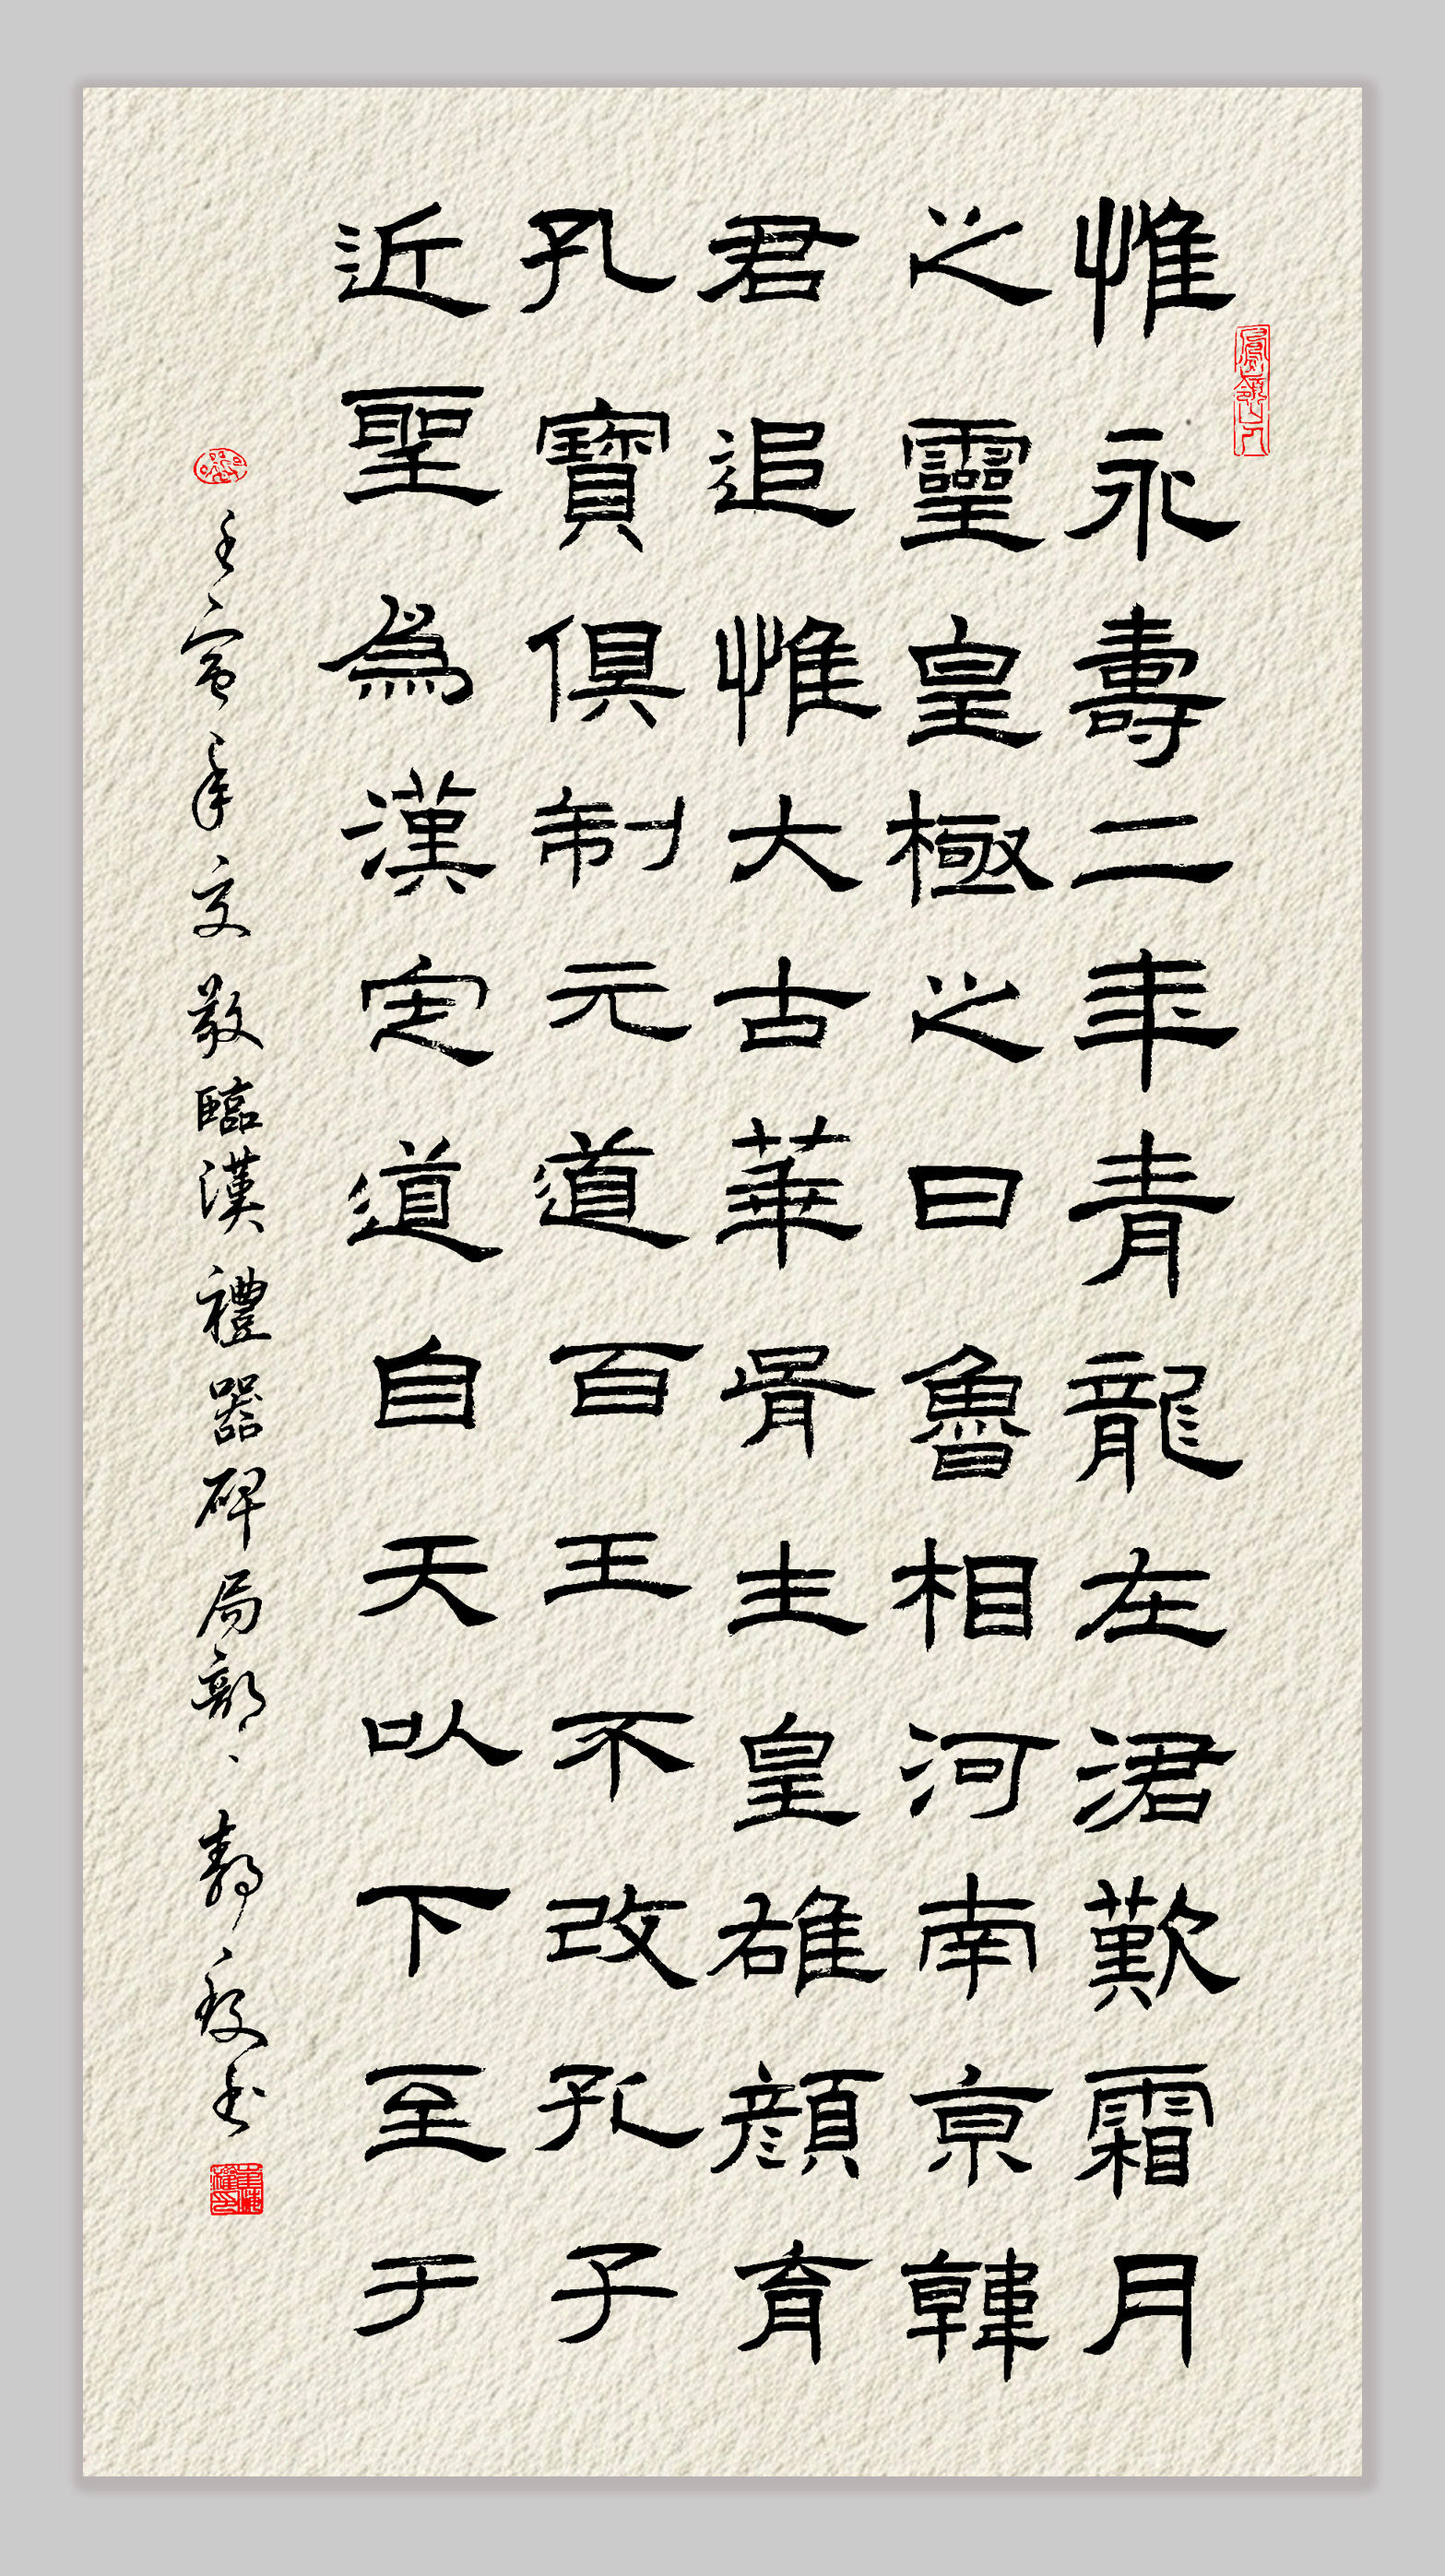 惟永壽二年青龍在涒歎霜月
之靈皇極之日魯相河南京韓
君追惟大古華胥生皇雄顏育
孔寶俱制元道百王不改孔子
近聖為漢定道自天以下至于
壬寅年文敬臨漢禮器碑局部、靜疫书